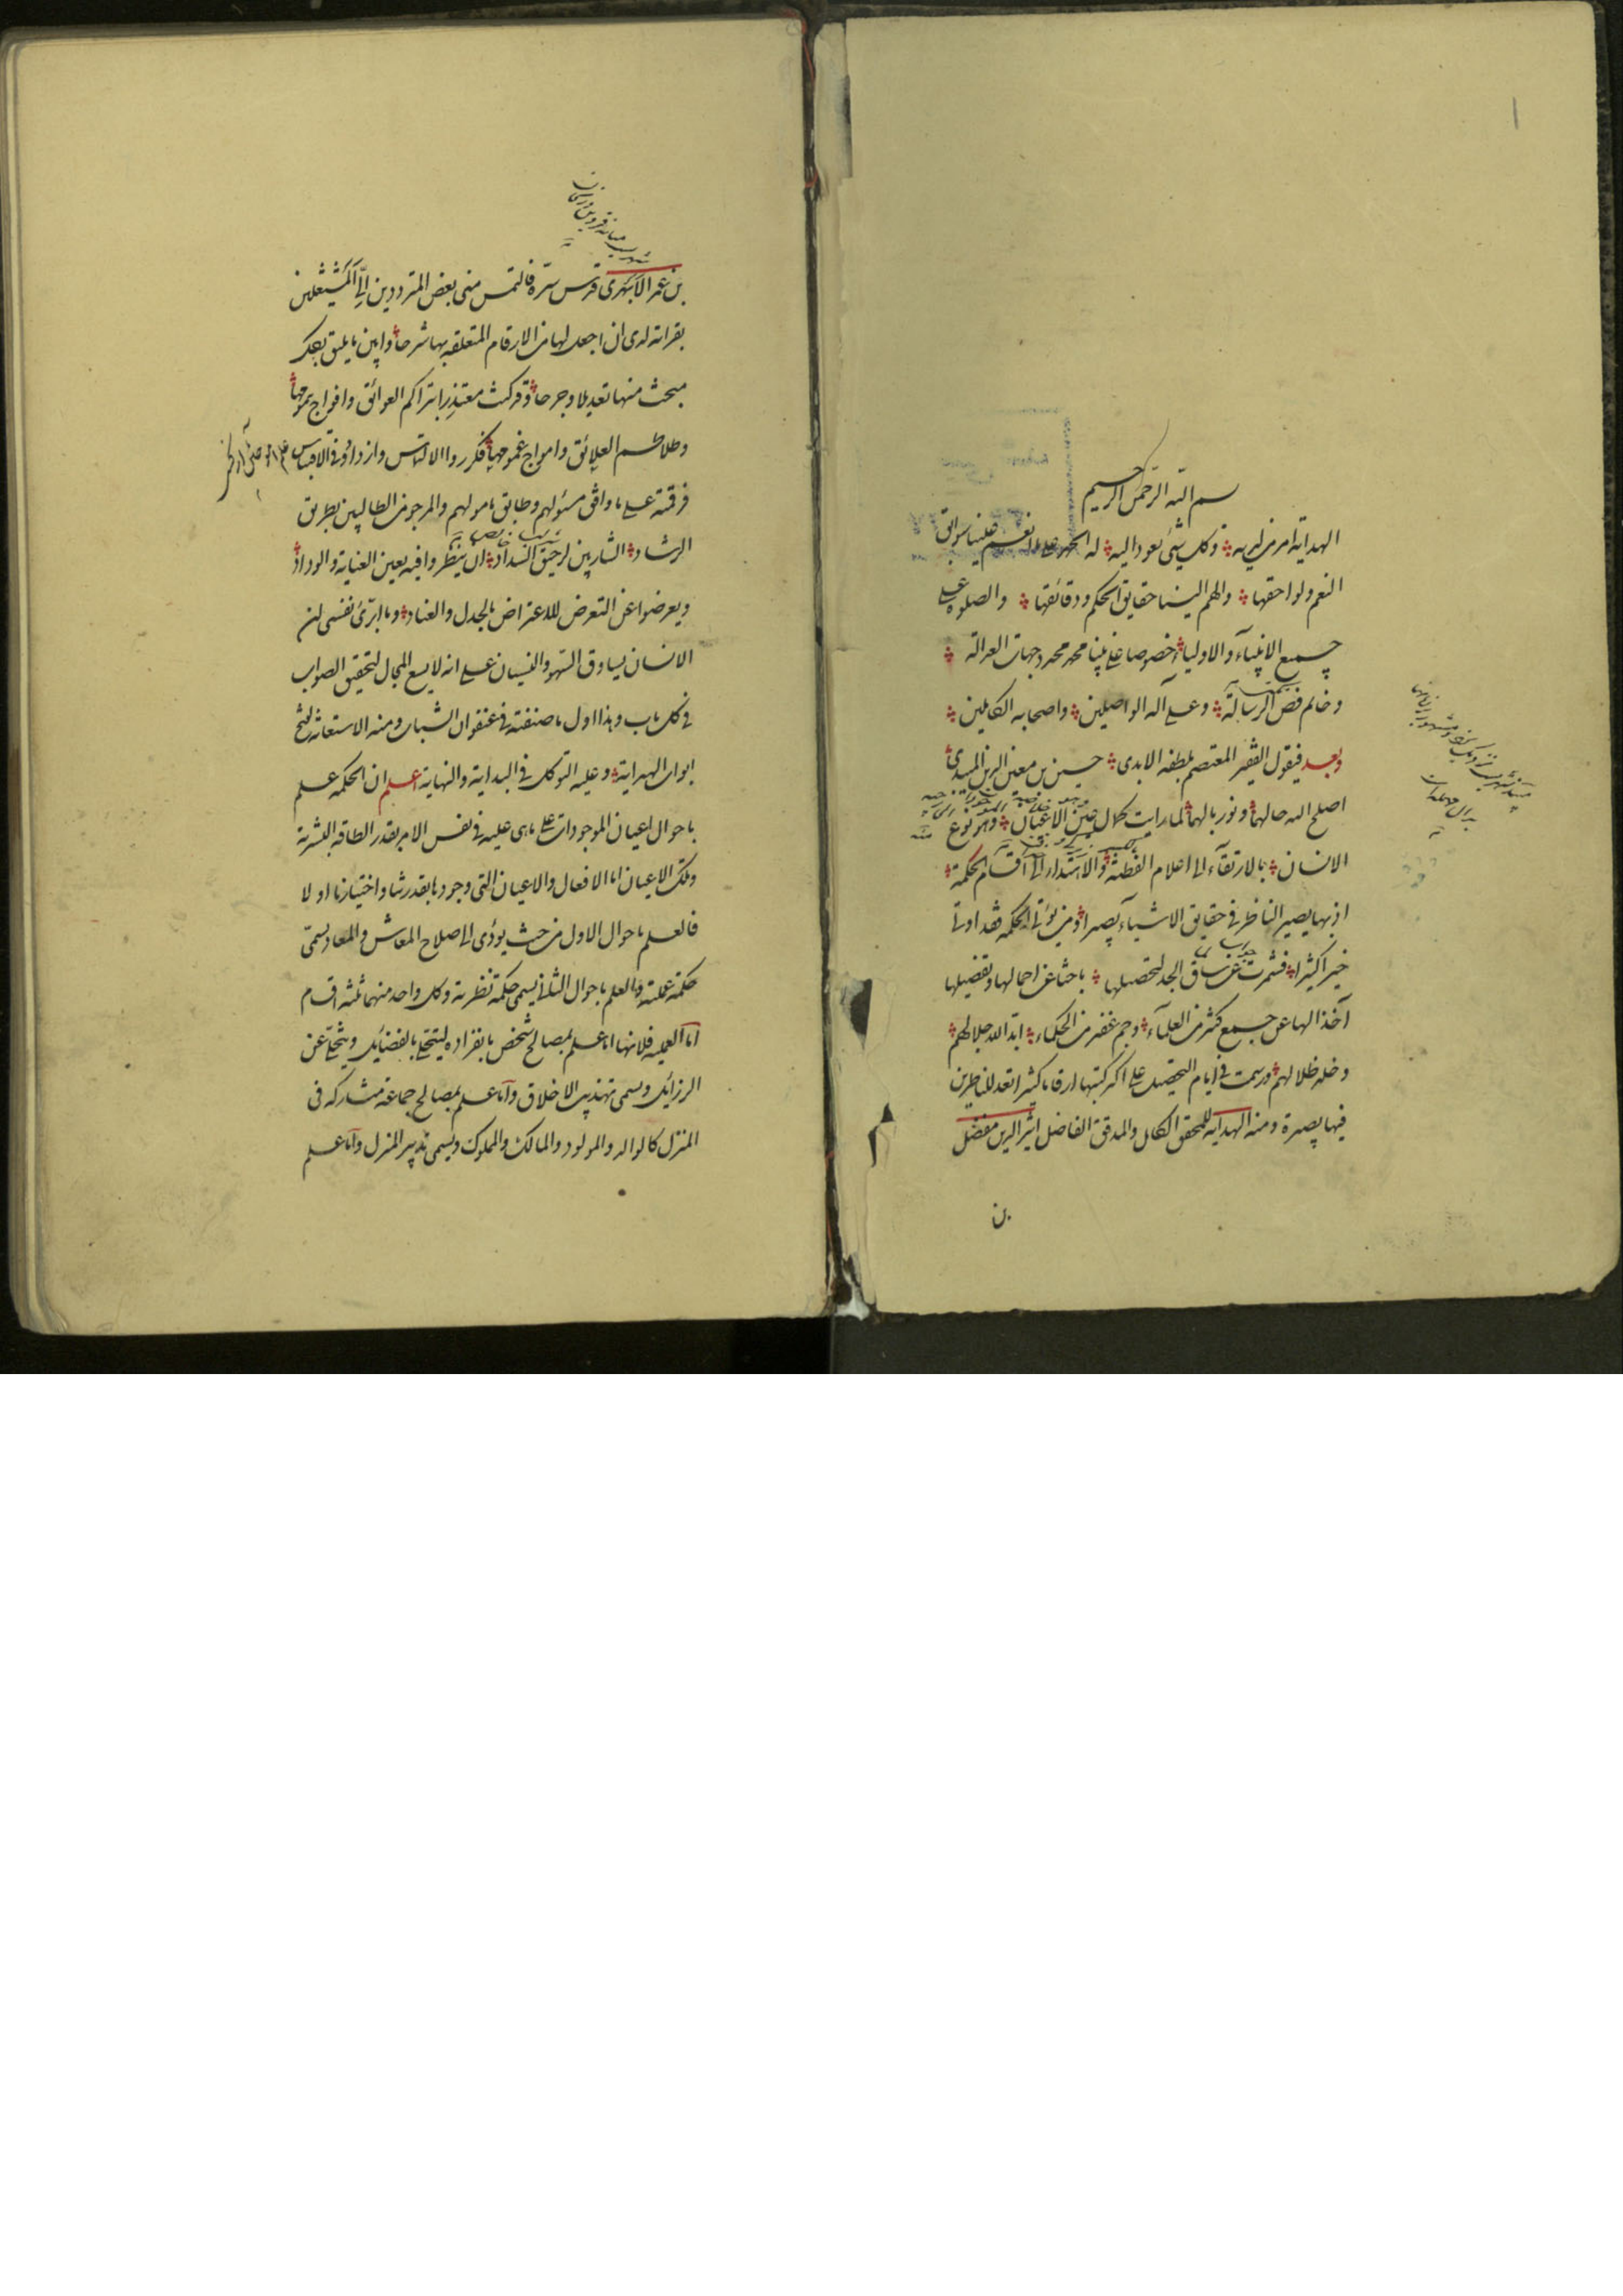 بسم الله الرحمن الرحيم
الهداية امر من لديه وكل شئ يعود اليه له الحمد على ما انعم علينا سوابق
النعم ولواحقها والهم الينا حقايق الحكم ودقائقها والصلوة على
جميع الانبياء والاولياء خصوصا على نبينا محمد محدد جهات العدالة
وخاتم فص الرسالة وعلى آله الواصلين واصحابه الكاملين
وبعد فيقول الفقير المعتصم بلطفه الابدى حسين بن معين الدين الميبدى
اصلح الله حالهما ونور بالهما لما رايت كمال عين الاعيان وهو نوع
الانسان بالارتقاء الى اعلام الفطنة والاستدارة الى اقسام الحكمة
اذ بها يصير الناظر فى حقايق الاشياء بصيرا ومن يؤتى الحكمة فقد اوتى
خيرا كثيرا فشمرت عن ساق الجد لتحصيلها باحثا عن اجمالها وتفصيلها
آخذا لها عن جمع كثير من العلماء وجم غفير من الحكماء ابد الله جلالهم
وخلد ظلالهم ورسمت فى ايام التحصيل على اكثر كتبها ارقاما كثيرا تعد للناظرين
فيها بصيرة ومنها الهداية للمحقق الكامل والمدقق الفاضل اثير الدين مفضل
بن
بن عمر الابهرى قدس سره فالتمس منى بعض المترددين الى المشتغلين
بقراته لدى ان اجعل لها من الارقام المتعلقه بها شرحا وابين ما يليق بكل
مبحث منها تعديلا وجرحا وقد كنت معتذرا بتراكم العوائق وافواج تموجها
وطلاطم العلائق وامواج غموجها فكرروا الالتماس وازدادوا فى الاقتباس
فرقمته على ما وافق مسئولهم وطابق مامولهم والمرجو من الطالبين بطريق
الرشاد الشاربين لرحيق السداد ان ينظروا فيه بعين العناية والوداد
ويعرضوا عن التعرض للاعتراض بالجدل والعناد وما ابرئ نفسى لان
الانسان يساوق السهو والنسيان على انه لا يسع المجال لتحقيق الصواب
فى كل باب وهذا اول ما صنفته فى عنفوان الشباب ومنه الاستعانة لفتح
ابواب الهداية وعليه التوكل فى البداية والنهاية اعلم ان الحكمة علم
باحوال اعيان الموجودات على ما هى عليه فى نفس الامر بقدر الطاقة البشرية
وتلك الاعيان اما الافعال والاعيان التى وجودها بقدرتنا واختيارنا او لا
فالعلم باحوال الاول من حيث يؤدى الى اصلاح المعاش والمعاد يسمى
حكمة عملية والعلم باحوال الثانى يسمى حكمة نظرية وكل واحد منهما ثلثه اقسام
اما العملية فلانها اما علم بمصالح شخص بانفراده ليتحلى بالفضايل ويتخلى عن
الرزائل ويسمى تهذيب الاخلاق واما علم بمصالح جماعة متشاركه فى
المنزل كالوالد والمولود والمالك والمملوك ويسمى تدبير المنزل واما علم